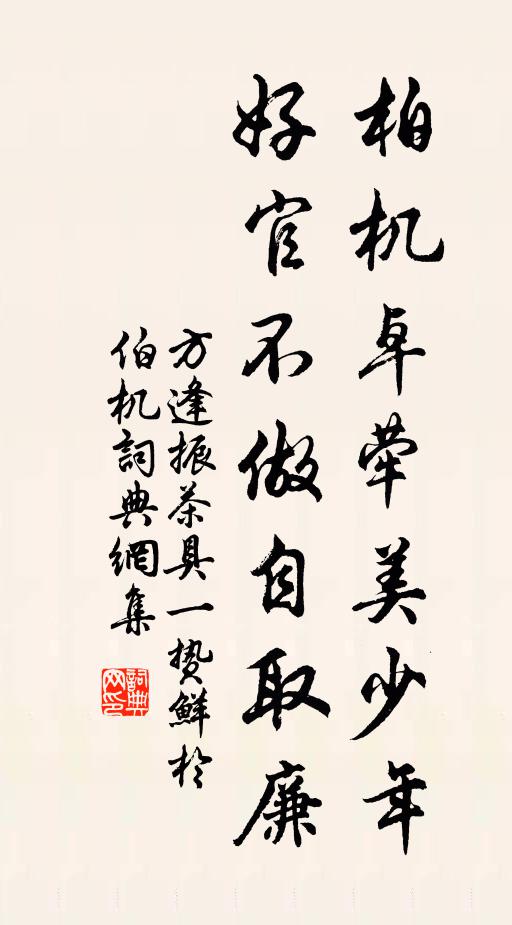 柏机卓荦美少年
好官不做自取廉
方逢振茶具一贽鲜於
伯机詞典網集
詞典网印